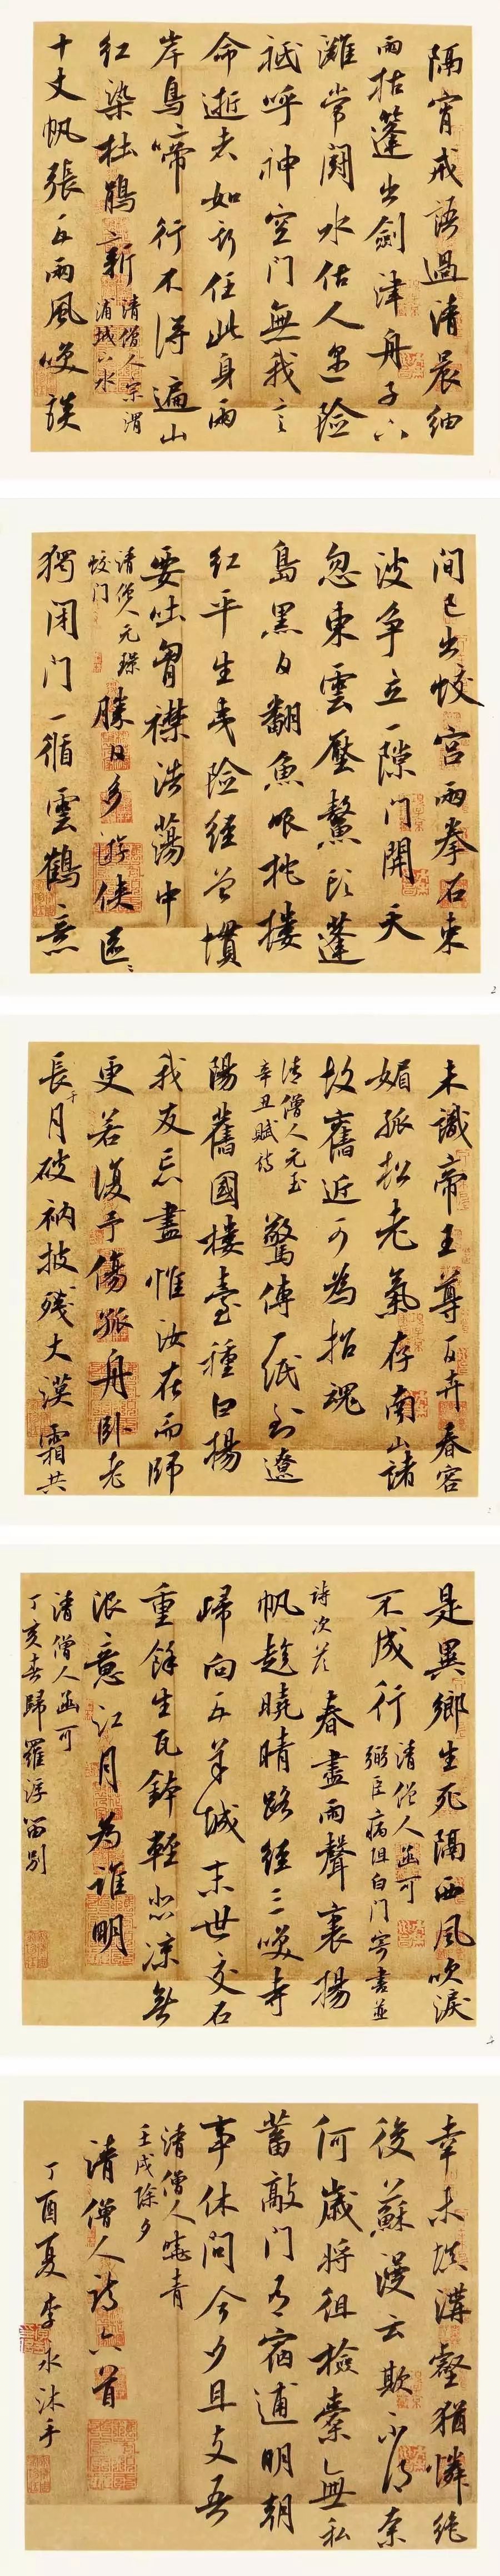 隔宵戒語過清晨細
雨枯篷出劍津舟子六
灘常鬪水估人遇險
祇呼神空門無我言
命逝者如斯任此身兩
岸鳥啼行不得遍山
紅染杜鵑新
清僧人宗渭
浦城小水
十丈帆張五兩風笑談
間已出蛟宮兩拳石束
波爭立一隙門開天
忽東雲壓鰲頭蓬
島黑日翻魚眼挽樓
紅平生夷險經曾慣
要吐胷襟浩蕩中
清僧人元璟
蛟门
勝日多游侠區
獨閉门一循雲鶴意
未識帝王尊百卉春容
媚孤松老氣存南山諸
故舊近可為招魂
清僧人元玉
辛丑賦詩
驚傳一纸到遼
陽舊國樓臺種白楊
我友忘盡惟汝在而師
更若復予傷孤舟卧老
長干月破衲披残大漠霜共
是異鄉生死隔西風吹淚
不成行
清僧人函可
弼臣病阻白门寄書並
詩次答
春盡雨聲裏揚
帆趁曉晴路经三笑寺
歸向五羊城末世交石
重餘生瓦鉢輕悲凉無
限意江月為誰明
清僧人函可
丁亥春歸羅浮留别
幸未填溝壑猶憐绝
後蘇漫云欺不得奈
何歲將徂檢橐無私
蓄敲门有宿逋明朝
事休問今夕且支吾
清僧人曉青
壬戌除夕
清僧人詩六首
丁酉夏李永沐手